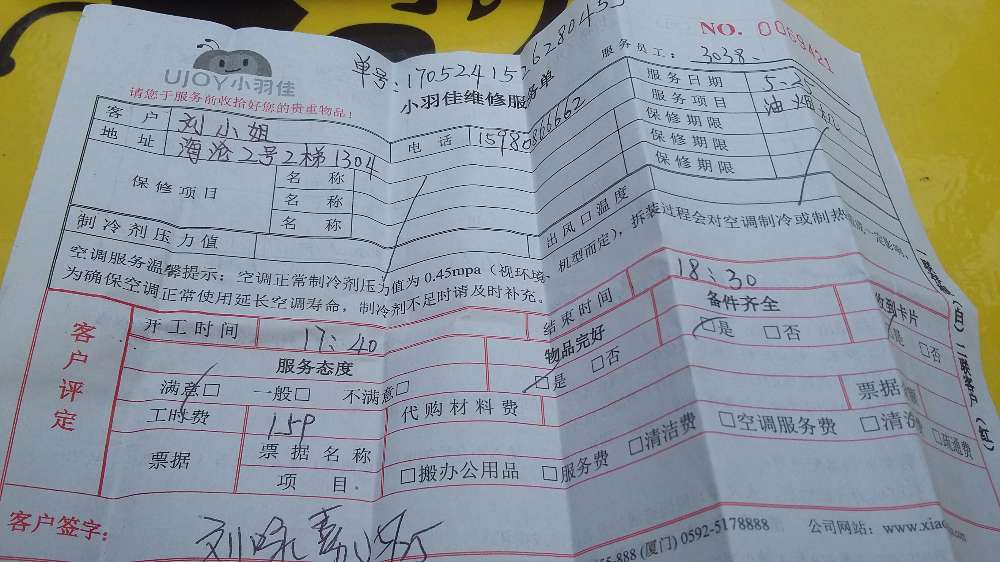 NO. 0069421
UJOY小羽佳
单号:1705241526280455
请您于服务前收拾好您的贵重物品!
小羽佳维修服务单
服务员工: 3038
客户 刘小姐
电话
服务日期 5.25
地址 海沧2号2梯1304
服务项目 油烟
保修期限
保修项目 名称
保修期限
名称
保修期限
名称
制冷剂压力值
出风口温度
空调服务温馨提示: 空调正常制冷剂压力值为 0.45mpa (视环境、机型而定), 拆装过程会对空调制冷或制热
为确保空调正常使用延长空调寿命, 制冷剂不足时请及时补充。
客户评定
开工时间 17:40
结束时间 18:30
服务态度
物品完好
备件齐全
收到卡片
满意□ 一般□ 不满意□
□是 □否
□是 □否
□是 □否
工时费
代购材料费
票据
票据 票据名称
项目
□搬办公用品 □服务费 □清洁费 □空调服务费 □清洗 □疏通费
客户签字:
(厦门) 0592-5178888
公司网站: www.xiao